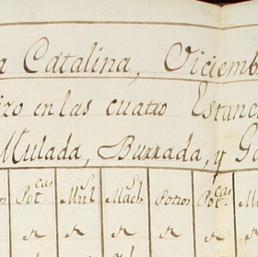 a Catalina, Diciemb
izo en las cuatro Estanc
Mulada, Burrada, y Ga
os Pot.cas Mul.s Mach.s Potros Pot.cas M